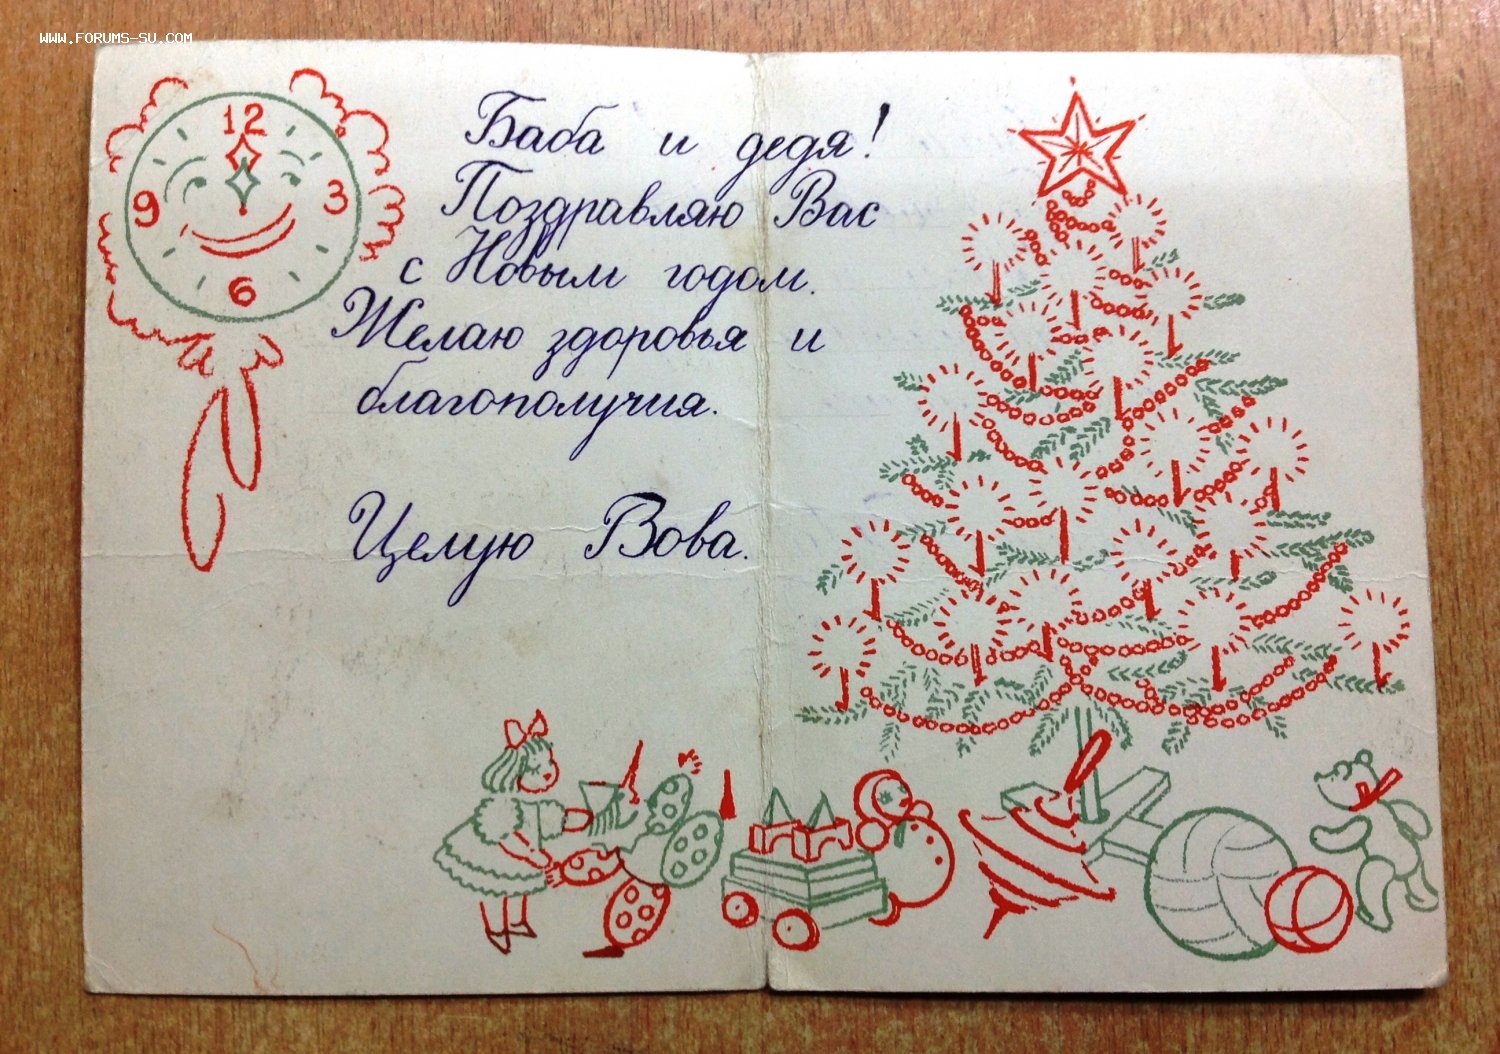 WWW.FORUMS-SU.COM
12
9
3
6
Баба и дедя!
Поздравляю Вас
с Новым годом.
Желаю здоровья и
благополучия.
Целую Вова.